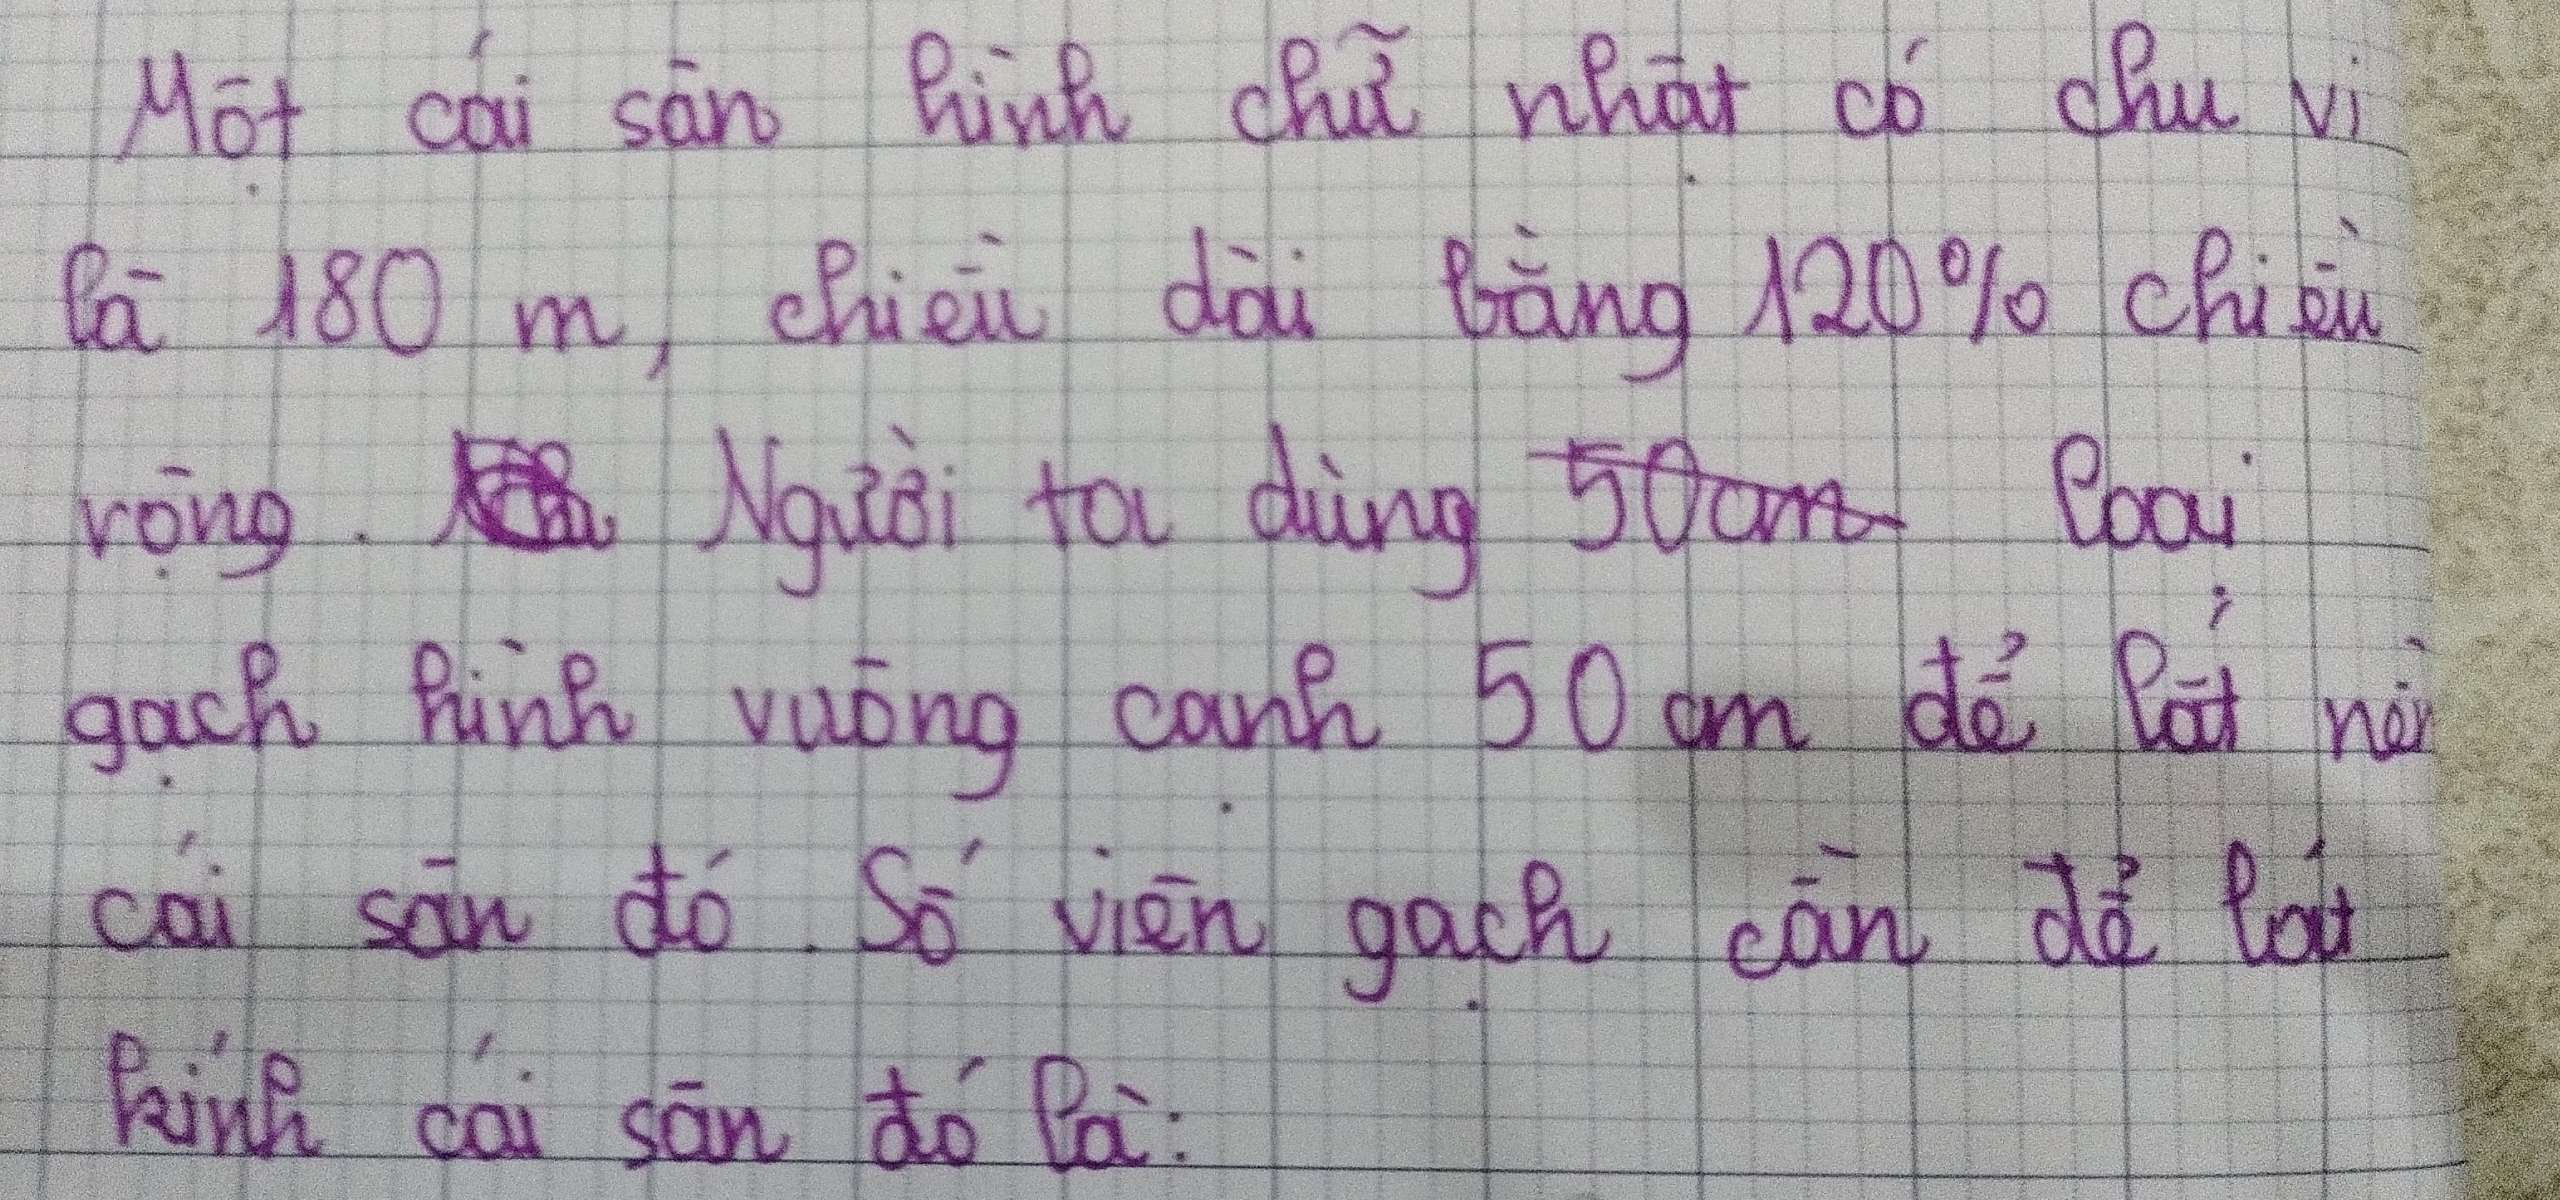 Một cái sân hình chữ nhật có chu vi
là 180 m, chiều dài bằng 120% chiều
rộng. Người ta dùng 50cm loại
gạch hình vuông cạnh 50 cm để lát nền
cái sân đó. Số viên gạch cần để lát
kính cái sân đó là: